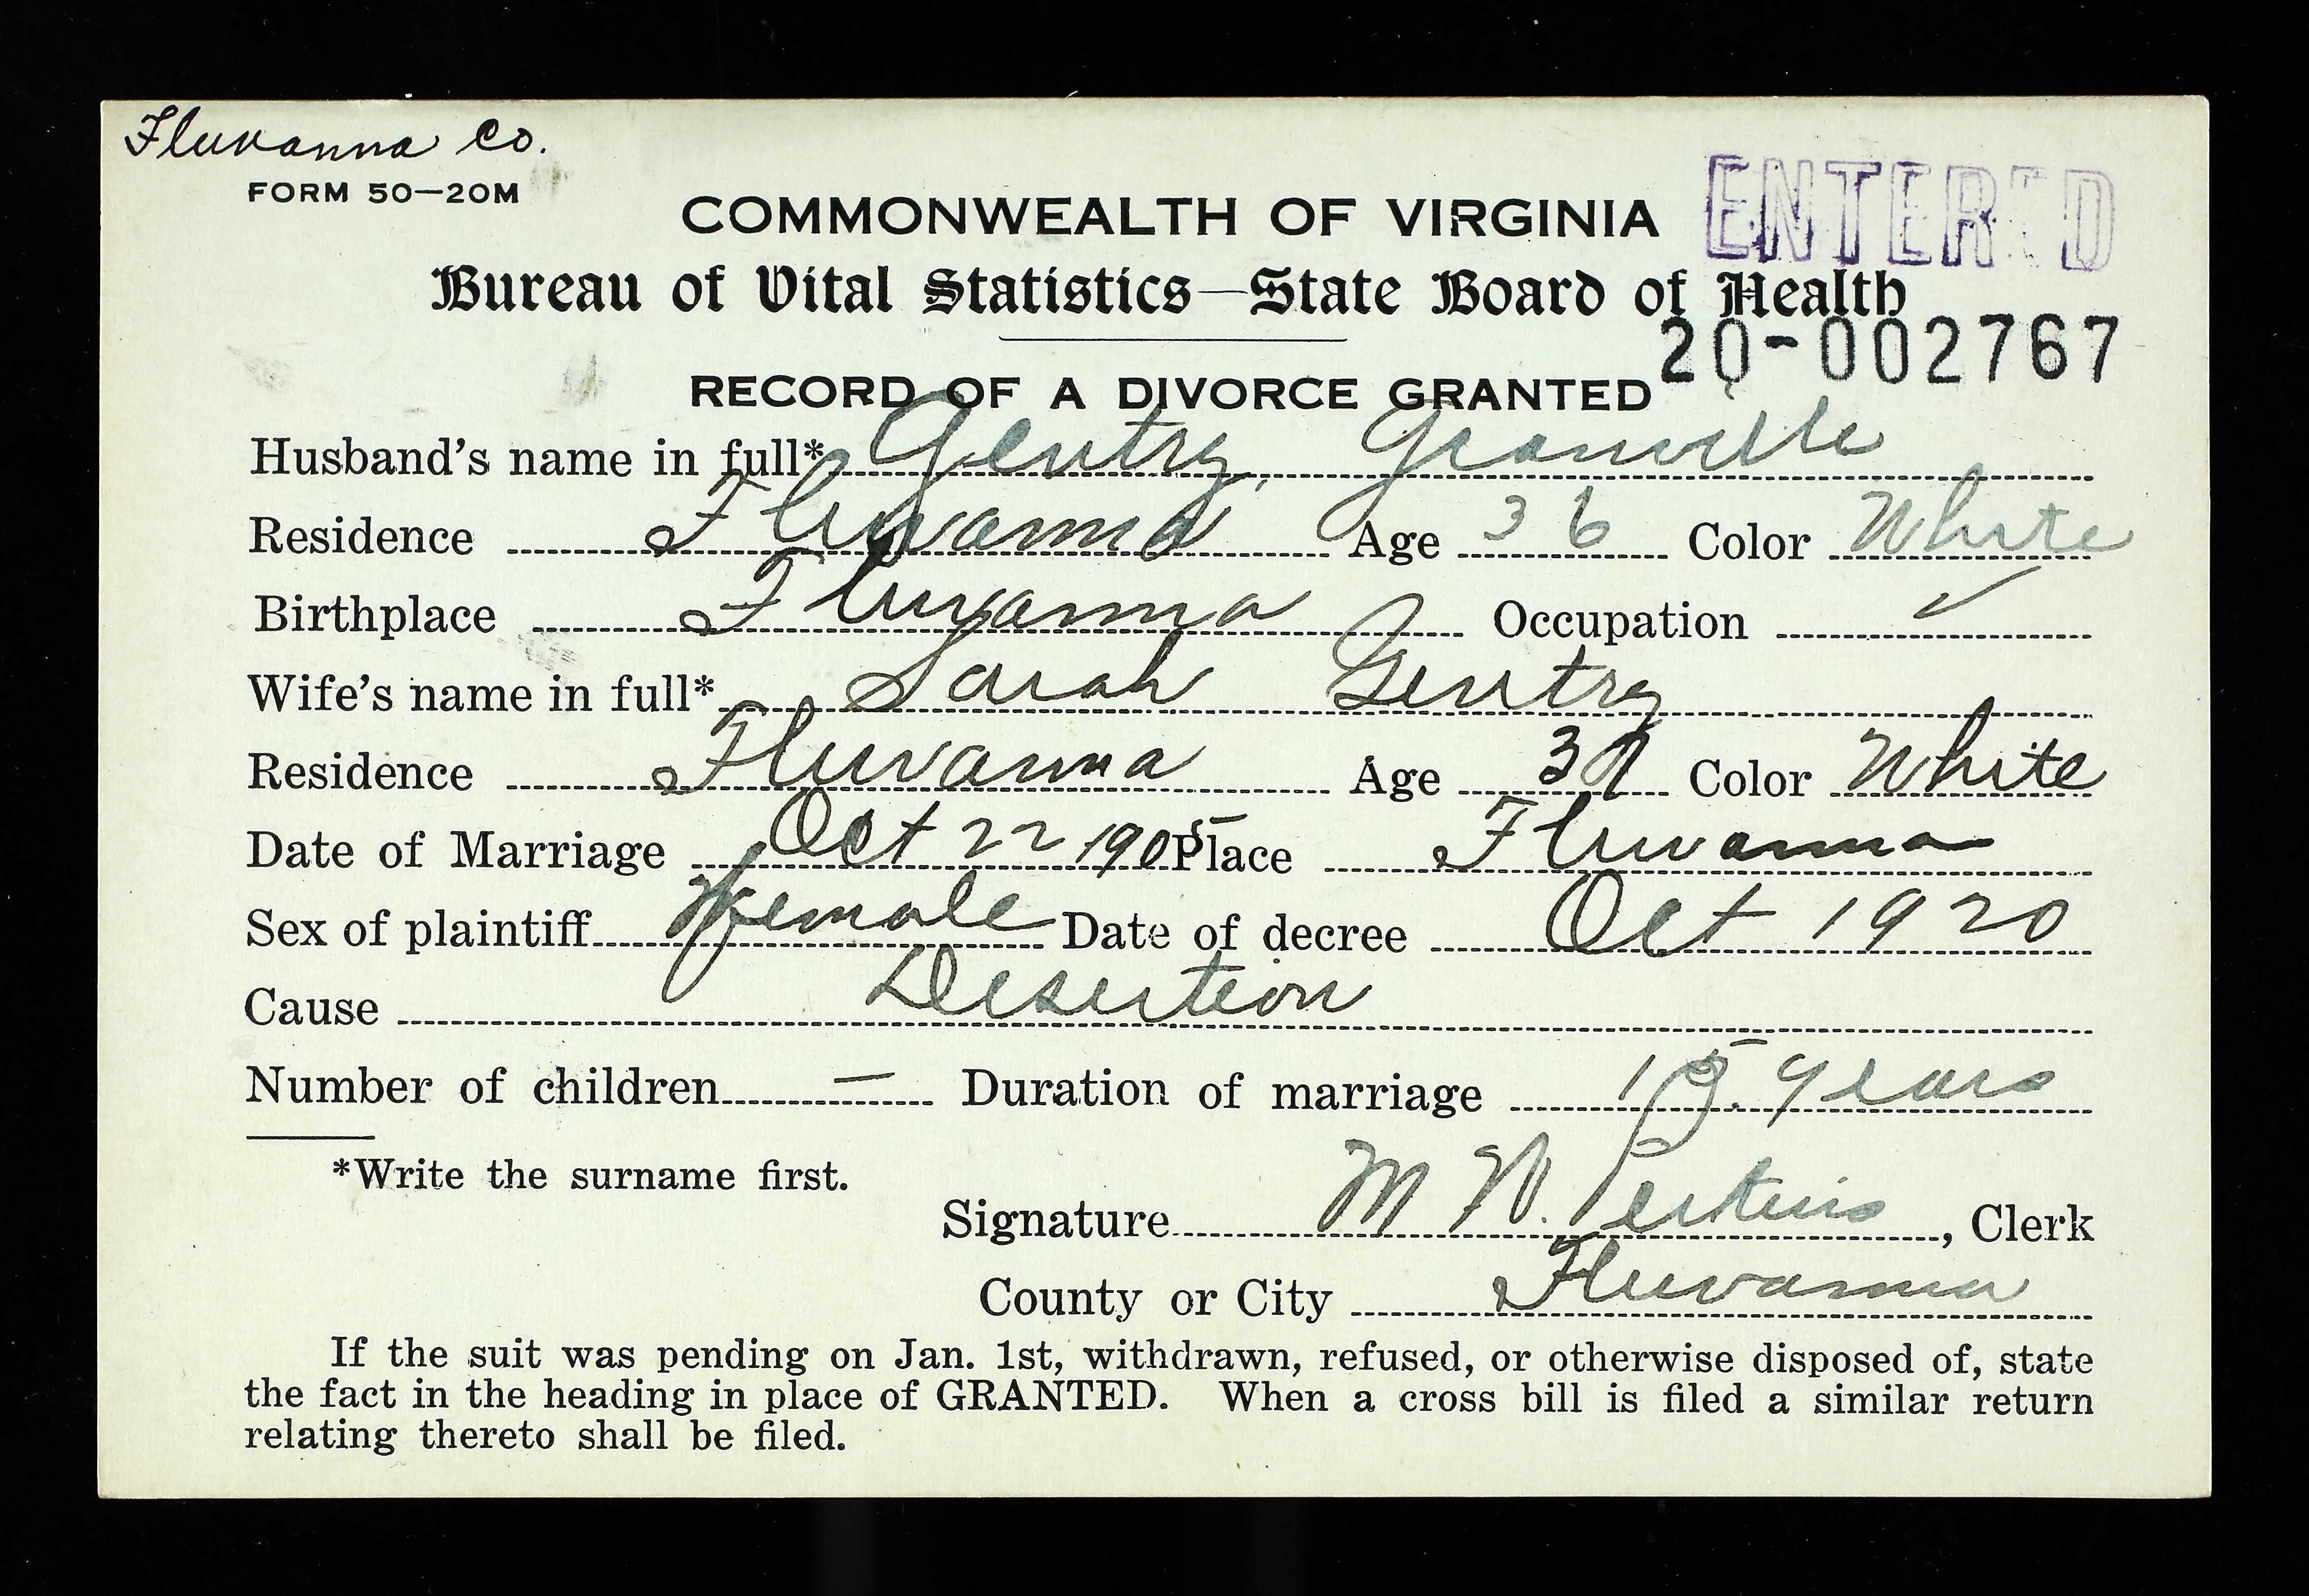 Fluvanna Co.
FORM 50—20M
COMMONWEALTH OF VIRGINIA ENTERED
Bureau of Vital Statistics—State Board of Health
20-002767
RECORD OF A DIVORCE GRANTED
Husband's name in full* Gentry, Granville
Residence Fluvanna Age 36 Color White
Birthplace Fluvanna Occupation ✓
Wife's name in full* Sarah Gentry
Residence Fluvanna Age 37 Color White
Date of Marriage Oct 22 1905 Place Fluvanna
Sex of plaintiff Female Date of decree Oct 1920
Cause Desertion
Number of children — Duration of marriage 15 years
*Write the surname first.
Signature M W. Perkins, Clerk
County or City Fluvanna
If the suit was pending on Jan. 1st, withdrawn, refused, or otherwise disposed of, state
the fact in the heading in place of GRANTED. When a cross bill is filed a similar return
relating thereto shall be filed.